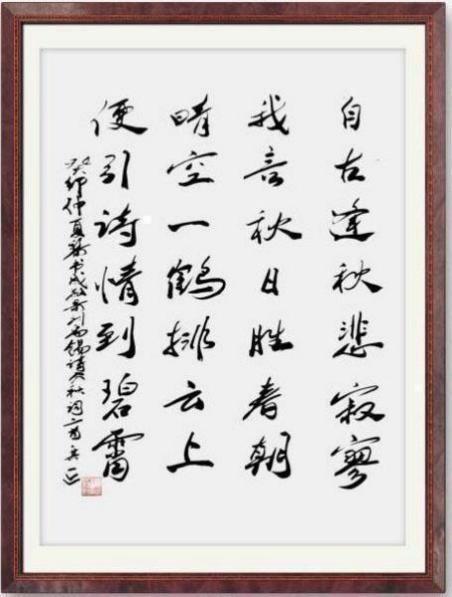 自古逢秋悲寂寥
我言秋日胜春朝
晴空一鶴排云上
便引詩情到碧霄
癸卯仲夏 刘禹锡 秋词